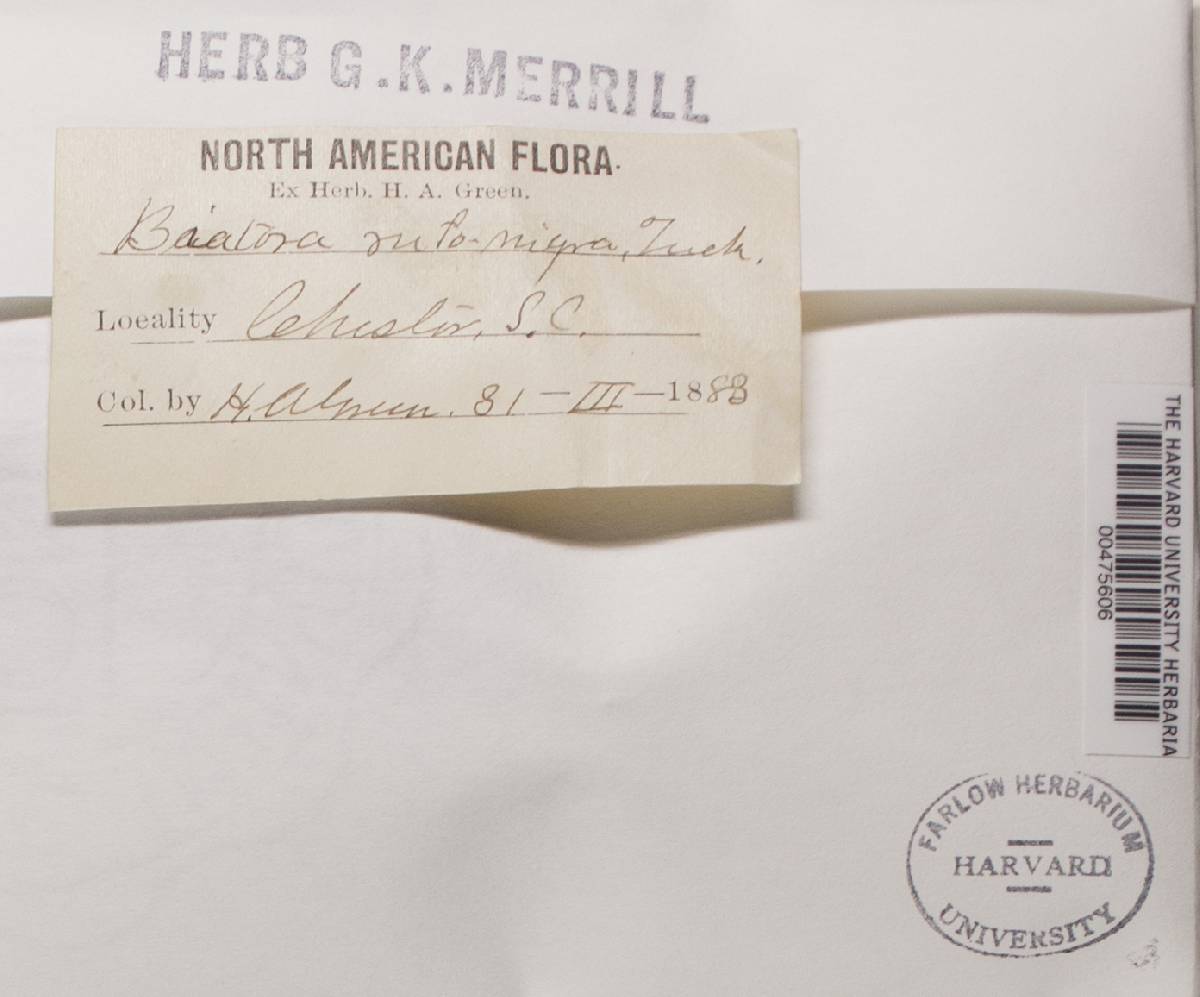 HERB G.K.MERRILL
NORTH AMERICAN FLORA.
Ex Herb. H. A. Green.
Biatora rufo-nigra, Tuck.
Locality Chester, S.C.
Col. by H. A. Green. 31-III-1888
THE HARVARD UNIVERSITY HERBARIA
00475606
FARLOW HERBARIUM
HARVARD
UNIVERSITY